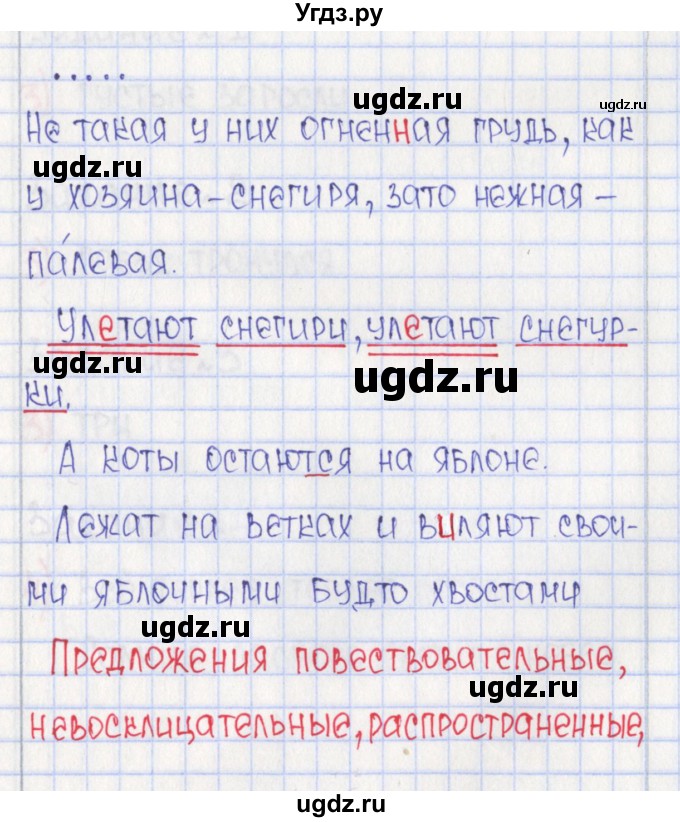 Угдз.ру
.....
ugdz.ru
ugdz.ru
Не такая у них огненная грудь, как
ugdz.ru
у хозяина-снегиря, зато нежная -
ugdz.ru
палевая.
Улетают снегири, улетают снегур-
ugdz.ru
ugdz.ru
ки.
А коты остаются на яблоне.
Лежат на ветках и виляют свои-
ми яблочными будто хвостами
ugdz.ru
Предложения повествовательные,
ugdz.ru
невосклицательные, распространенные,
ugdz.ru